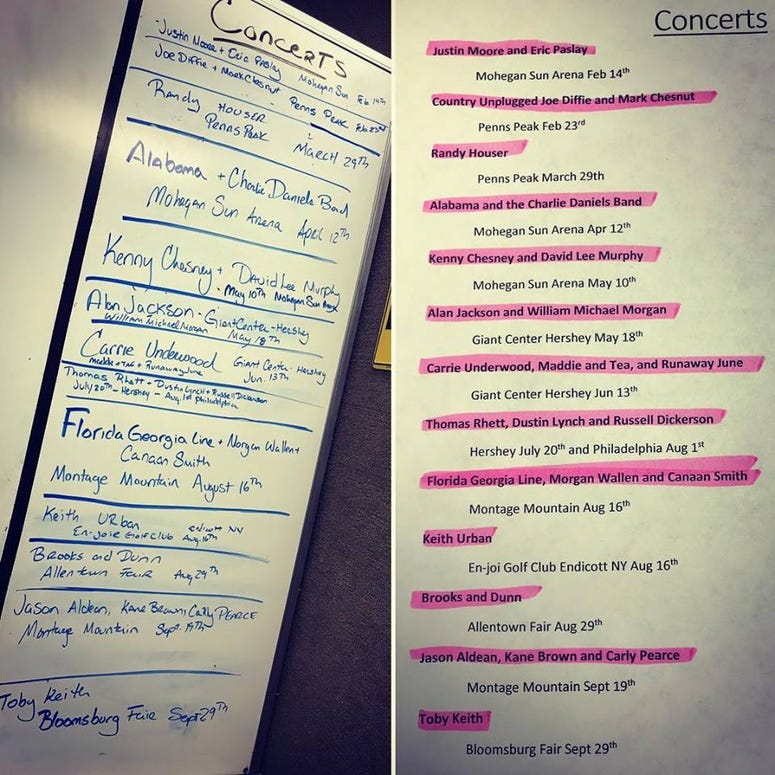 Concerts
Justin Moore + Eric Paslay Mohegan Sun Feb 14th
Joe Diffie + Mark Chesnut Penns Peak Feb 23rd
Randy Houser
Penns Peak March 29th
Alabama + Charlie Daniels Band
Mohegan Sun Arena April 12th
Kenny Chesney + David Lee Murphy
May 10th Mohegan Sun Arena
Alan Jackson - Giant Center - Hershey
William Michael Morgan May 18th
Carrie Underwood Giant Center - Hershey
Maddie + TAE + Runaway June Jun. 13th
Thomas Rhett + Dustin Lynch + Russell Dickerson
July 20th - Hershey - Aug. 1st Philadelphia
Florida Georgia Line + Morgan Wallen +
Canaan Smith
Montage Mountain August 16th
Keith Urban Endicott NY
En-Joie Golf Club Aug. 16th
Brooks and Dunn
Allentown Fair Aug 29th
Jason Aldean, Kane Brown, Carly PEARCE
Montage Mountain Sept. 19th
Toby Keith
Bloomsburg Fair Sept 29th
Concerts
Justin Moore and Eric Paslay
Mohegan Sun Arena Feb 14th
Country Unplugged Joe Diffie and Mark Chesnut
Penns Peak Feb 23rd
Randy Houser
Penns Peak March 29th
Alabama and the Charlie Daniels Band
Mohegan Sun Arena Apr 12th
Kenny Chesney and David Lee Murphy
Mohegan Sun Arena May 10th
Alan Jackson and William Michael Morgan
Giant Center Hershey May 18th
Carrie Underwood, Maddie and Tea, and Runaway June
Giant Center Hershey Jun 13th
Thomas Rhett, Dustin Lynch and Russell Dickerson
Hershey July 20th and Philadelphia Aug 1st
Florida Georgia Line, Morgan Wallen and Canaan Smith
Montage Mountain Aug 16th
Keith Urban
En-joi Golf Club Endicott NY Aug 16th
Brooks and Dunn
Allentown Fair Aug 29th
Jason Aldean, Kane Brown and Carly Pearce
Montage Mountain Sept 19th
Toby Keith
Bloomsburg Fair Sept 29th